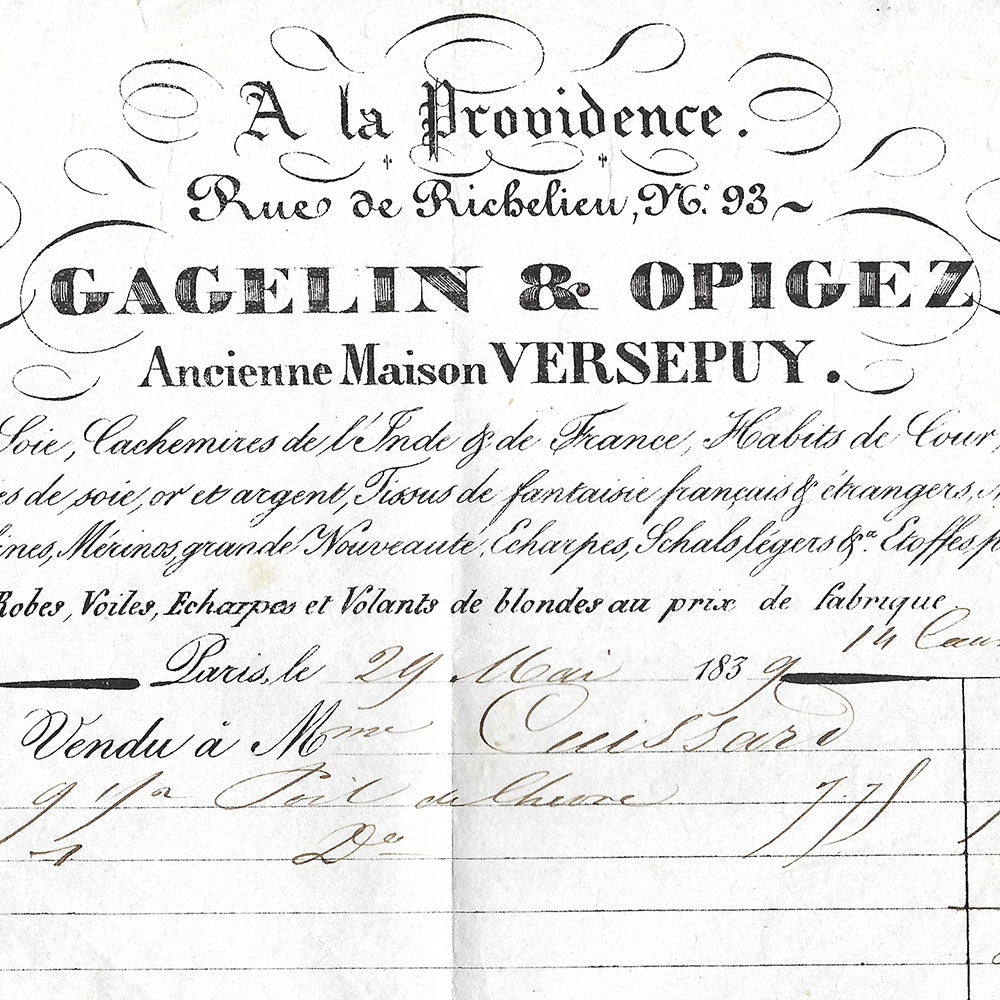 A la Providence.
Rue de Richelieu, N.º 93
GAGELIN & OPIGEZ
Ancienne Maison VERSEPUY.
Soie, Cachemires de l'Inde & de France, Habits de Cour,
de soie, or et argent, Tissus de fantaisie français & étrangers,
Mérinos, grande Nouveauté, Echarpes, Schals légers &ª. Etoffes
Robes, Voiles, Echarpes et Volants de blondes au prix de fabrique.
14
Paris, le 29 Mai 1839
Vendu à Mme Cuissard
9 1/2 Poil de Chevre 7.75
1 Do